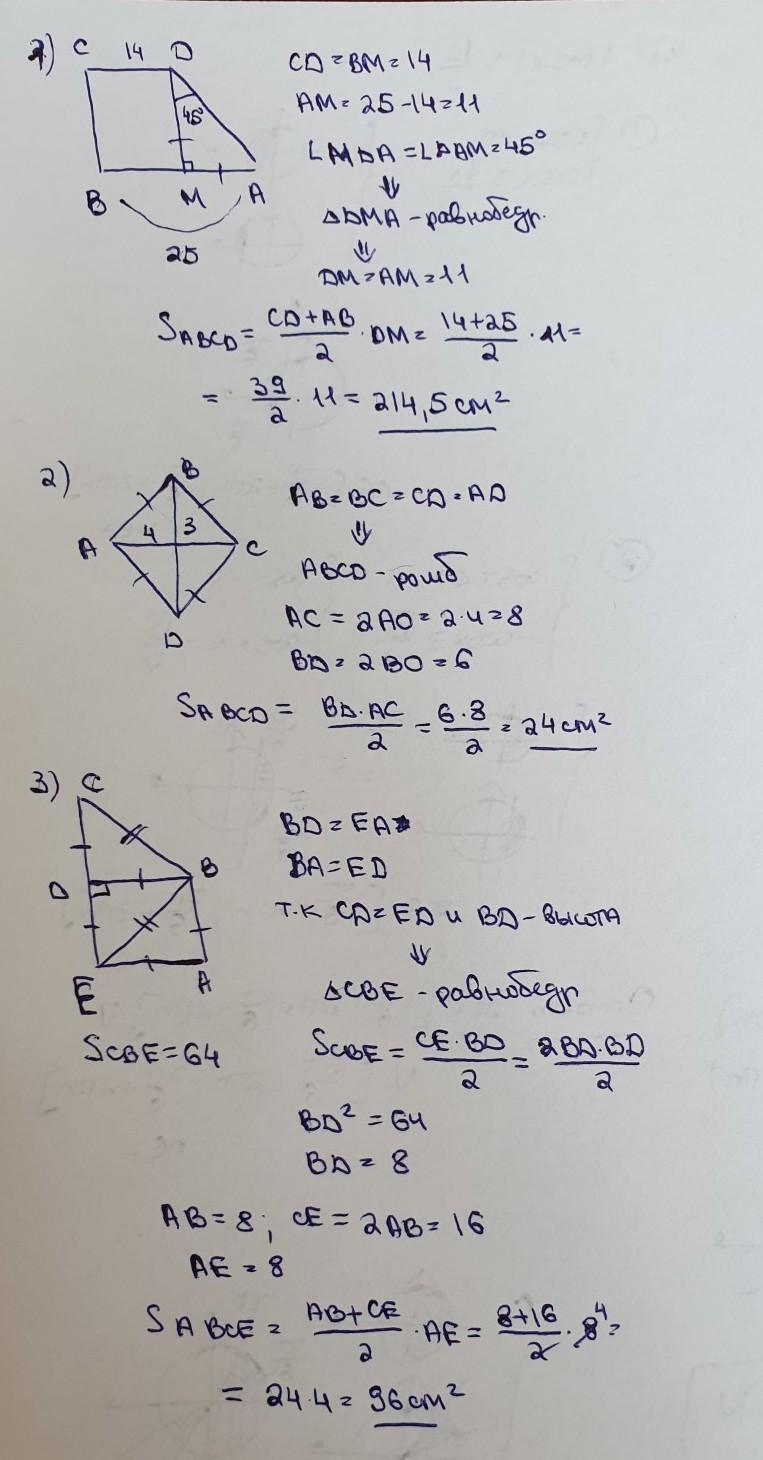 1)
C 14 D
45°
B M A
25
CD = BM = 14
AM = 25 - 14 = 11
∠MDA = ∠DAM = 45°
⇓
△DMA - равнобедр.
⇓
DM = AM = 11
S_ABCD = (CD + AB)/2 · DM = (14 + 25)/2 · 11 =
= 39/2 · 11 = 214,5 см²
2)
B
A 4 3 C
D
AB = BC = CD = AD
⇓
ABCD - ромб
AC = 2AO = 2·4 = 8
BD = 2BO = 6
S_ABCD = (BD·AC)/2 = (6·8)/2 = 24 см²
3)
C
D B
E A
S_CBE = 64
BD = EA
BA = ED
т.к CD = ED и BD - высота
⇓
△CBE - равнобедр
S_CBE = (CE·BD)/2 = (2BD·BD)/2
BD² = 64
BD = 8
AB = 8; CE = 2AB = 16
AE = 8
S_ABCE = (AB + CE)/2 · AE = (8 + 16)/2 · 8 4 =
= 24·4 = 96 см²